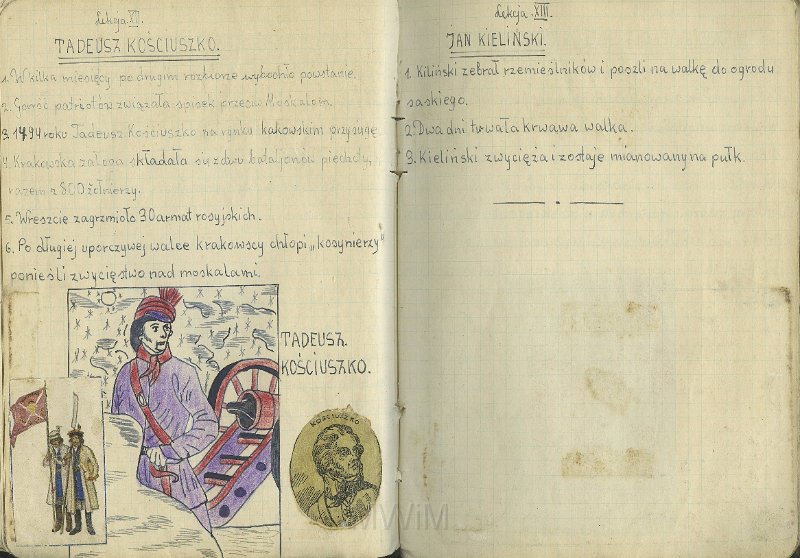 Lekcja XII.
TADEUSZ KOŚCIUSZKO.
1. W kilka miesięcy po drugim rozbiorze wybuchło powstanie.
2. Garść patriotów związała spisek przeciw Moskalom.
3. 1794 roku Tadeusz Kościuszko na rynku krakowskim przysięgę
4. Krakowska załoga składała się z dwu bataljonów piechoty,
razem z 800 żołnierzy.
5. Wreszcie zagrzmiało 30 armat rosyjskich.
6. Po długiej uporczywej walce krakowscy chłopi „kosynierzy"
ponieśli zwycięstwo nad moskalami.
TADEUSZ
KOŚCIUSZKO.
KOSCIUSZKO
Lekcja XIII.
JAN KIELIŃSKI.
1. Kiliński zebrał rzemieślników i poszli na walkę do ogrodu
saskiego.
2. Dwa dni trwała krwawa walka.
3. Kieliński zwycięża i zostaje mianowany na pułk.
MWiM